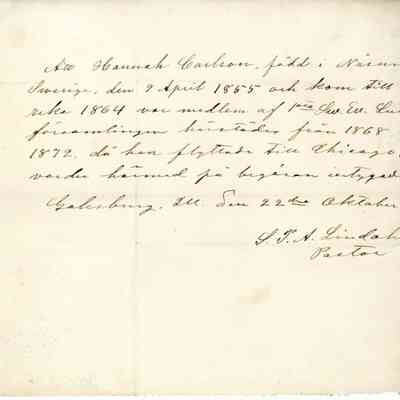 Att Hannah Carlson, född i Näsum
Sverige, den 9 April 1855 och kom till
rika 1864 var medlem af 1sta Sw. Ev. Lu
församlingen härstädes från 1868
1872, då hon flyttade till Chicago,
varder härmed på begäran intygad
Galesburg, Ill. den 22dra Oktober
S. P. A. Lindah
Pastor